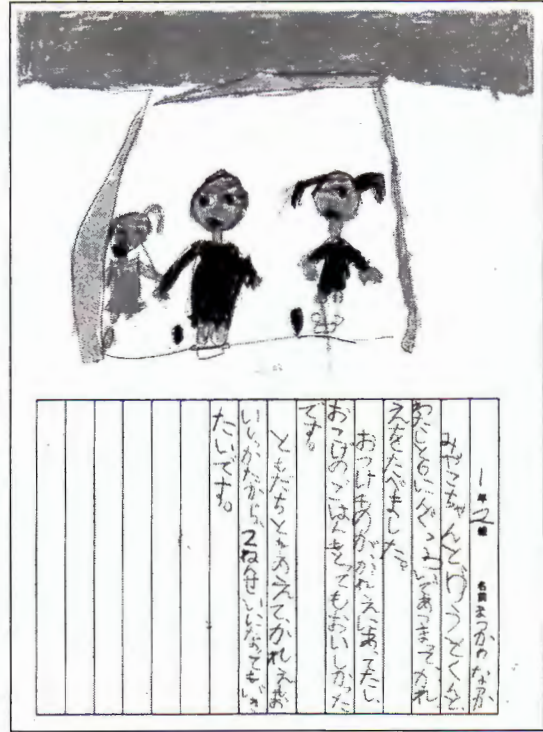 1年2組 名前 まつかわ なか
みやこちゃんとりうとくんと
わたしと
あつまってかれ
えをたべました。
おつけものがかれえにあってたし
おこげのごはんもとてもおいしかった
です。
ともだちとあえてかれえお
いしかったから、2ねんせいになってもいき
たいです。